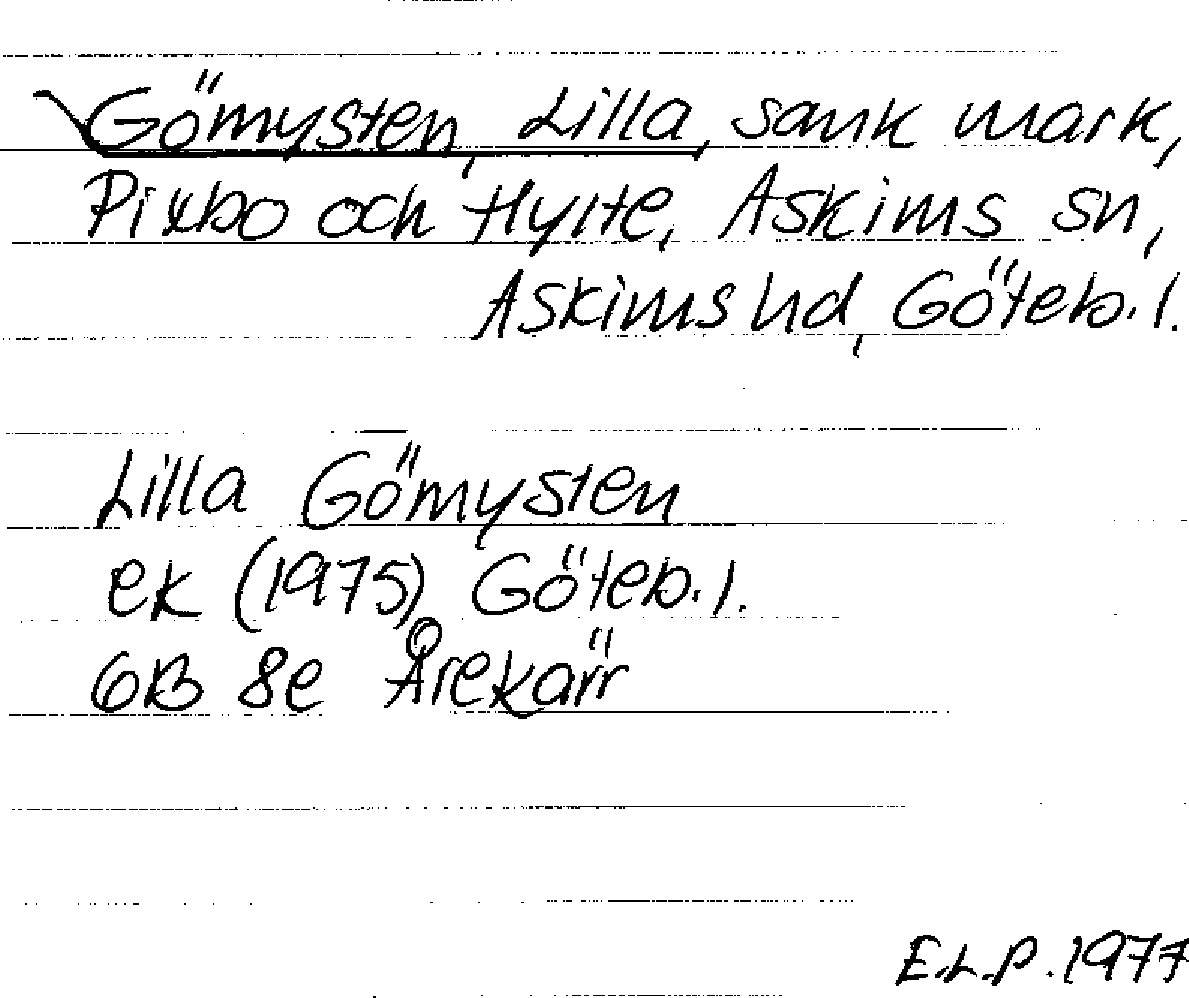 Gömysten, Lilla, sank mark,
Pixbo och Hylte, Askims sn,
Askims hd, Göteb. l.
Lilla Gömysten
ek (1975) Göteb. l.
6B 8e Årekärr
E.L.P. 1977